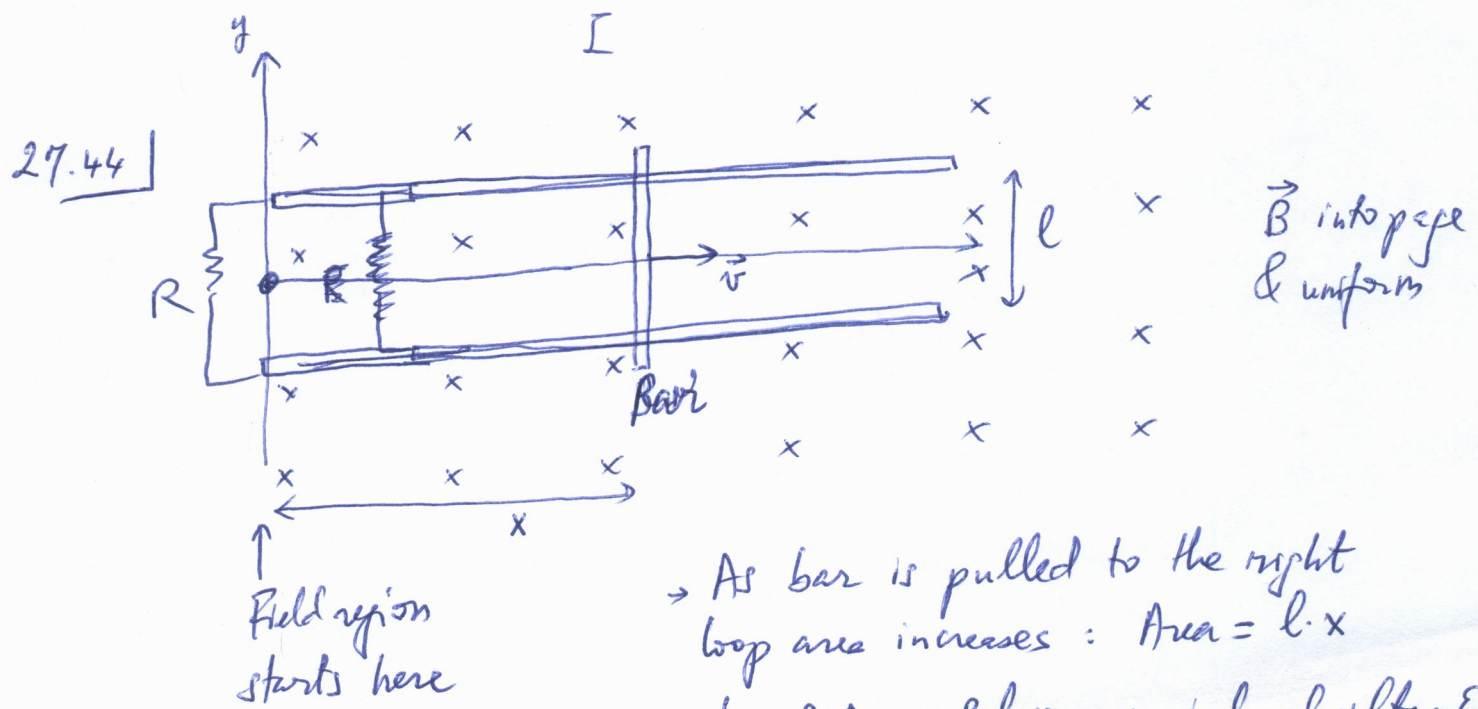 y
I
27.44
R
R
v⃗
l
B⃗ into page
& uniform
Bar
x
Field region
starts here
→ As bar is pulled to the right
loop area increases : Area = l·x